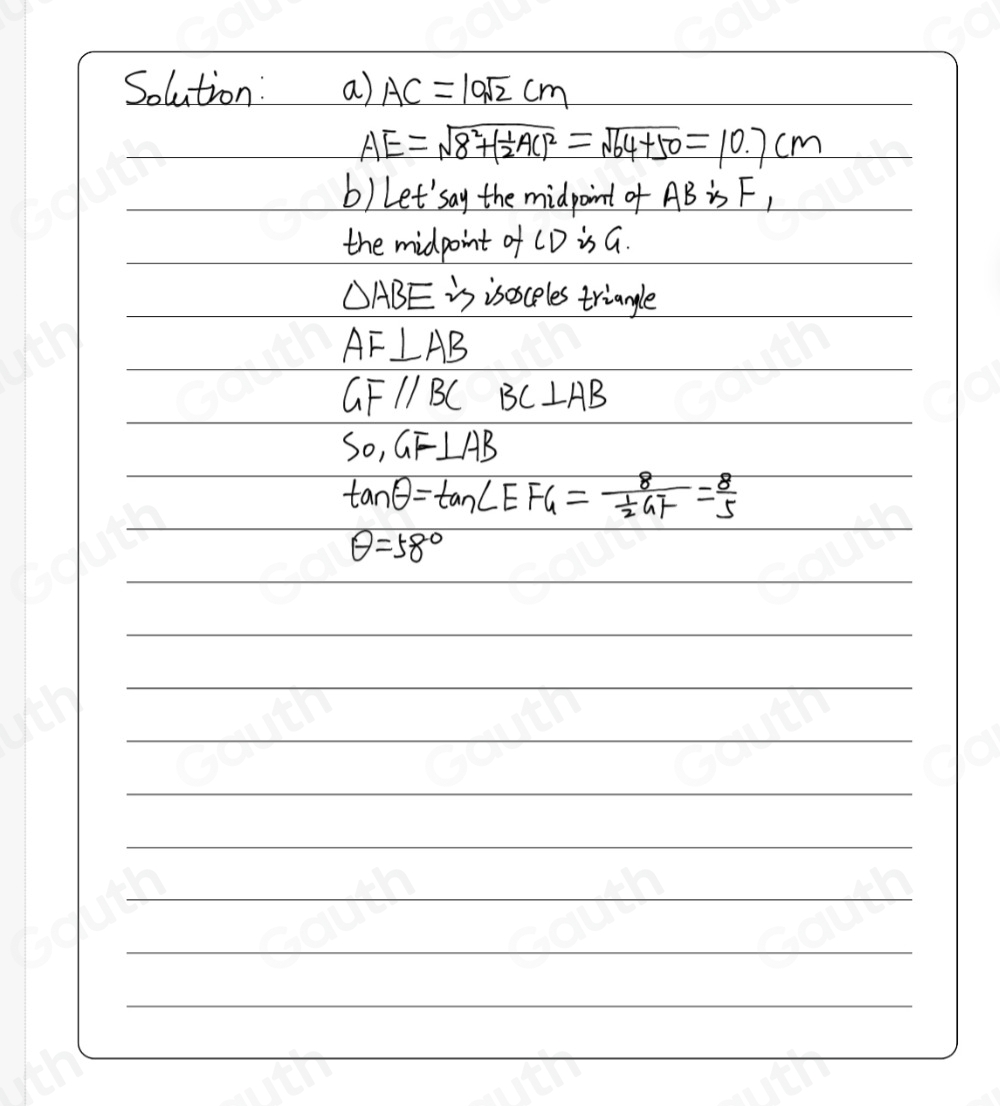 Solution: a) AC = 10√2 cm
AE = √8²+(½AC)² = √64+50 = 10.7 cm
b) Let'say the midpoint of AB is F,
the midpoint of CD is G.
△ABE is isosceles triangle
AF⊥AB
GF // BC BC⊥AB
So, GF⊥AB
tanθ = tan∠EFG = 8/(½GF) = 8/5
θ = 58°